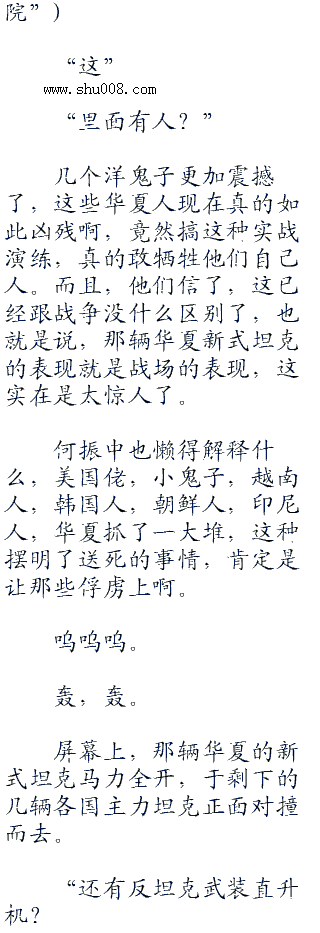 院”）
“这”
www.shu008.com
“里面有人？”
几个洋鬼子更加震撼
了，这些华夏人现在真的如
此凶残啊，竟然搞这种实战
演练，真的敢牺牲他们自己
人。而且，他们信了，这已
经跟战争没什么区别了，也
就是说，那辆华夏新式坦克
的表现就是战场的表现，这
实在是太惊人了。
何振中也懒得解释什
么，美国佬，小鬼子，越南
人，韩国人，朝鲜人，印尼
人，华夏抓了一大堆，这种
摆明了送死的事情，肯定是
让那些俘虏上啊。
呜呜呜。
轰，轰。
屏幕上，那辆华夏的新
式坦克马力全开，于剩下的
几辆各国主力坦克正面对撞
而去。
“还有反坦克武装直升
机？